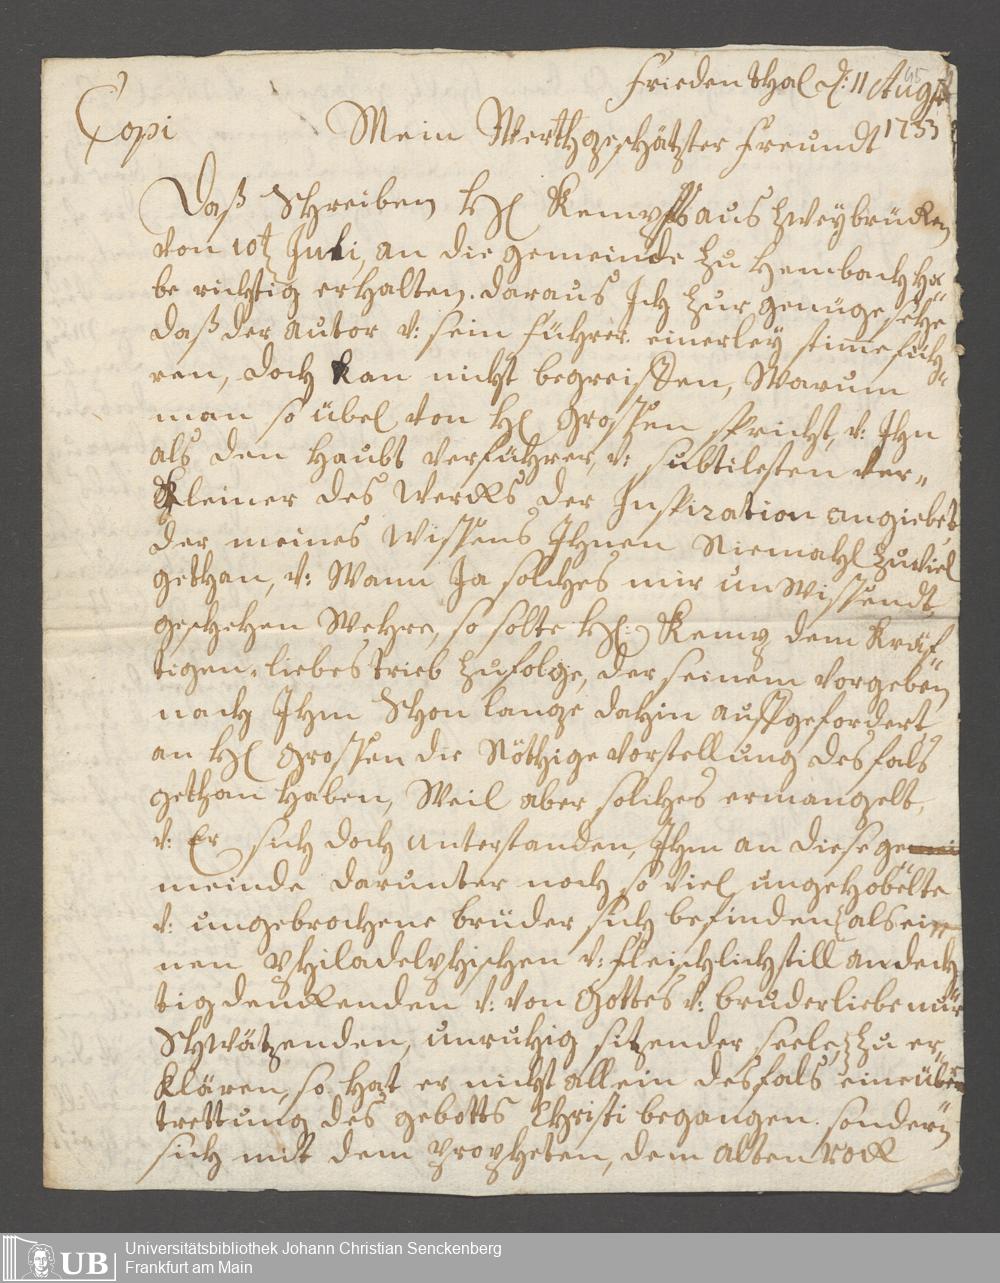 Friedenthal d: 11 Augst
Copi Mein Werthgeschätzter Freundt 1733
Daß Schreiben H Kempffs aus Zweybrücken
von 10t Juli, an die gemeinde zu Hembach ha¬
be richtig erhalten. daraus Ich zur genüge sehe
daß der autor v: sein führer einerley stimme füh¬
ren, doch kan nicht begreiffen, Warum
man so übel von H Grossen spricht, v: Ihn
als den Haubt verführer, v: subtilesten ver¬
kleiner des Wercks der Inspiration angiebet
der meines Wissens Ihnen Niemahl zuviel
gethan, v: Wann Ja solches mir unWissendt
geschehen Wehre, so solte H: Kempf dem kräf¬
tigen liebes trieb zufolge, der seinem vorgeben
nach Ihm Schon lange dahin auffgefordert
an H Grossen die Nöthige vorstellung desfals
gethan haben, Weil aber solches ermangelt,
v: Er sich doch unterstanden, Ihm an diese ge
meinde darunter noch so viel ungehobelte
v: ungebrochene brüder sich befinden als ei¬
nen philadelphischen v: fleischlich still andech
tig denckenden v: von Gottes v: bruderliebe nur
Schwätzenden, unruhig sitzender seele, zu er¬
klären, so hat er nicht allein desfals eine über
trettung des gebotts Christi begangen. sondern
sich mit dem propheten, dem alten rock
Universitätsbibliothek Johann Christian Senckenberg
Frankfurt am Main
UB